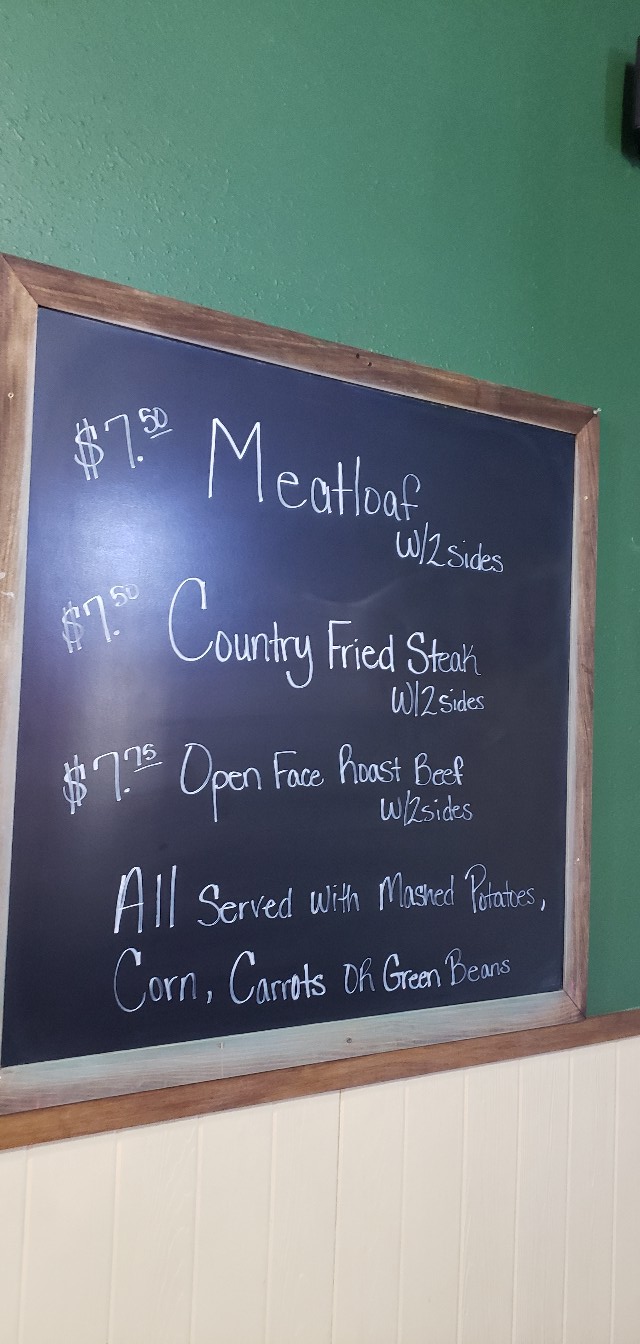 $7.50 Meatloaf
W/2 sides
$7.50 Country Fried Steak
W/2 sides
$7.75 Open Face Roast Beef
W/2 sides
All Served with Mashed Potatoes,
Corn, Carrots OR Green Beans